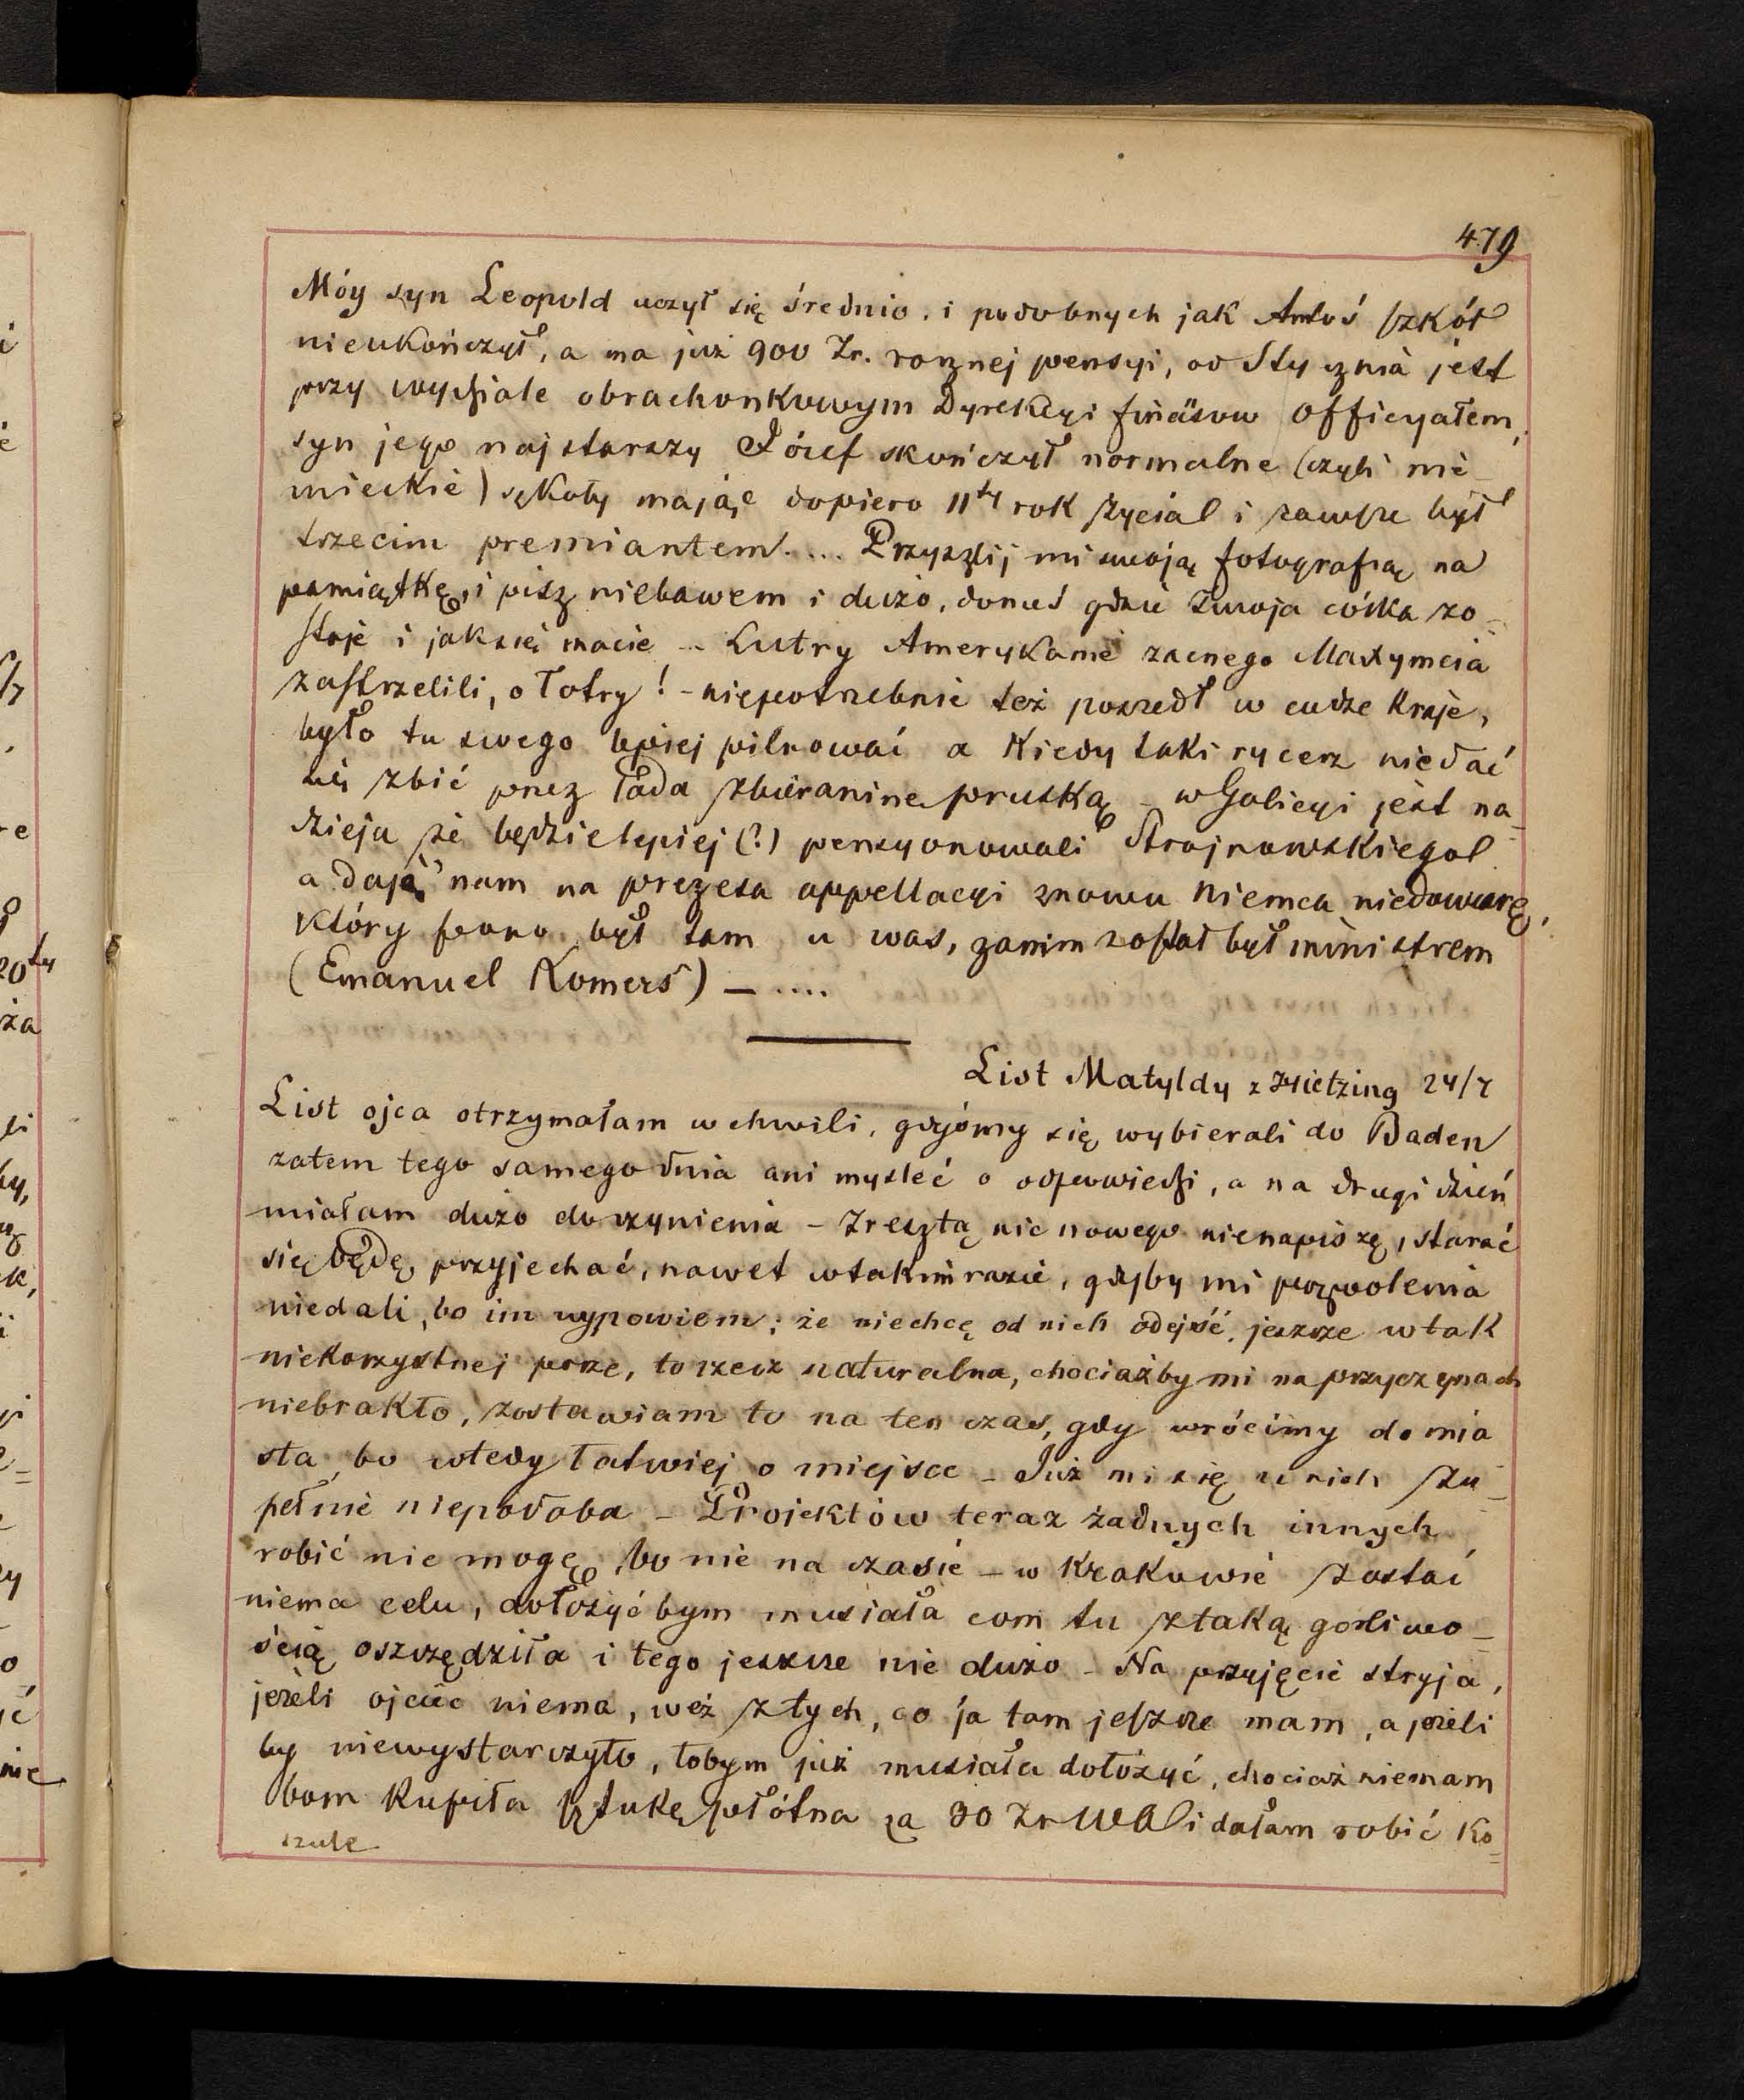 479
Móy syn Leopold uczył się średnio, i podobnych jak Antoś szkół
nieukończył, a ma już 900 Zr. rocznej pensyi, od Stycznia jest
przy wydziale obrachonkowym Dyrekcyi finäsow Officyałem,
syn jego najstarszy Józef skończył normalne (czyli nie
mieckie) szkoły mając dopiero 11ty rok życia i zawsze był
trzecim premiantem.... Przyszlij mi swoją fotografią na
pamiątkę, i pisz niebawem i dużo, donieś gdzie Twoja córka zo=
staje i jak się macie -- Łutry Amerykanie zacnego Maxymcia
zastrzelili, o łotry! - niepotrzebnie też poszedł w cudze kraje,
było tu swego lepiej pilnować a kiedy taki rycerz niedać
się zbić przez lada zbieraninę pruską - w Galicyi jest na-
dzieja że będzie lepiej (?) pensyonowali Strojnowskiego
a dają nam na prezesa appellacyi znowu Niemca niedowiarę,
który pono był tam u was, zanim został był ministrem
(Emanuel Komers) - ....
List Matyldy z Hietzing 24/7
List ojca otrzymałam w chwili, gdyśmy się wybierali do Baden
zatem tego samego dnia ani mysleć o odpowiedzi, a na drugi dzień
miałam dużo do czynienia - Zresztą nic nowego nienapiszę, starać
się będę przyjechać, nawet w takim razie, gdyby mi pozwolenia
niedali, bo im wypowiem; że niechcę od nich odejść jeszcze w tak
niekorzystnej porze, to rzecz naturalna, chociażby mi na przyczynach
niebrakło, zostawiam to na ten czas, gdy wrócimy do mia
sta, bo wtedy łatwiej o miejsce - Już mi się u nich zu-
pełnie niepodoba - Projektów teraz żadnych innych
robić nie mogę, bo nie na czasie - w Krakowie zostać
niema celu, dołożyć bym musiała com tu z taką gorliwo=
ścią oszczędziła i tego jeszcze nie dużo - Na przyjęcie stryja,
jeżeli ojciec niema, weź z tych, co ja tam jeszcze mam, a jeżeli
by niewystarczyło, tobym już musiała dołożyć, chociaż niemam
bom kupiła sztukę płótna za 30 Zr WA i dałam robić ko=
szule